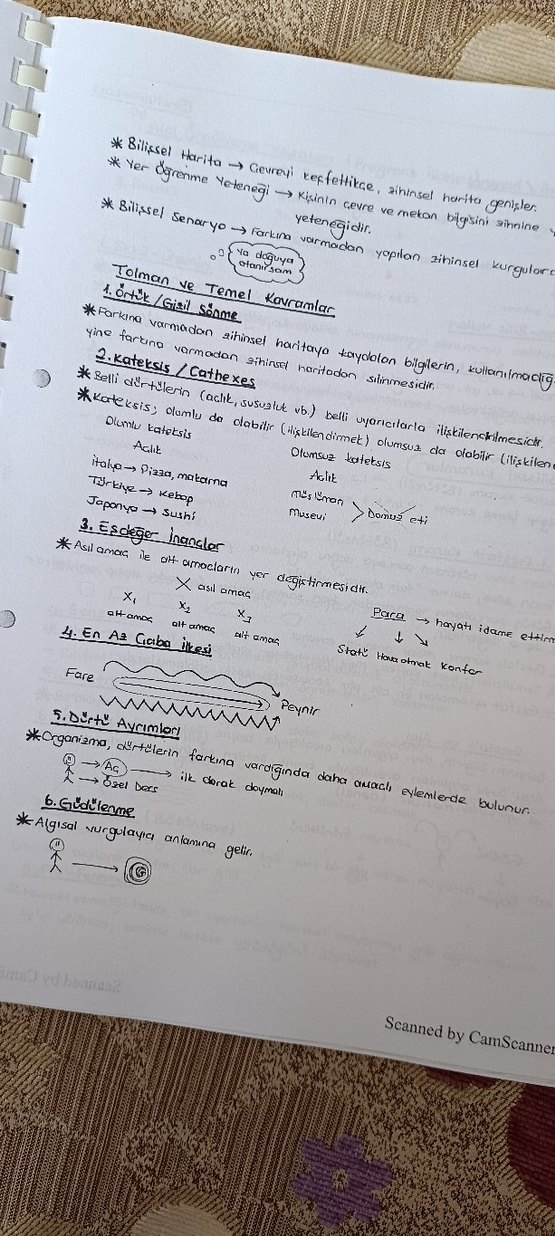 * Bilişsel Harita → Çevreyi keşfettikçe, zihinsel harita genişler.
* Yer Öğrenme Yeteneği → Kişinin çevre ve mekan bilgisini zihnine
yeteneğidir.
* Bilişsel Senaryo → Farkına varmadan yapılan zihinsel kurgular
Ya doğuya
atanırsam
Tolman ve Temel Kavramlar
1. Örtük/Gizil Sönme
* Farkına varmadan zihinsel haritaya kaydolan bilgilerin, kullanılmadığ
yine farkına varmadan zihinsel haritadan silinmesidir.
2. Kateksis / Cathexes
* Belli dürtülerin (açlık, susuzluk vb.) belli uyarıcılarla ilişkilendirilmesidir.
* Kateksis; olumlu da olabilir (ilişkilendirmek) olumsuz da olabilir (ilişkilen
Olumlu kateksis
Açlık
İtalya → Pizza, makarna
Türkiye → Kebap
Japonya → Sushi
Olumsuz kateksis
Açlık
Müslüman
Musevi > Domuz eti
3. Eşdeğer İnançlar
* Asıl amaç ile alt amaçların yer değiştirmesidir.
X asıl amaç
X1 X2 X3
alt amaç alt amaç alt amaç
Para → hayatı idame ettirm
Statü Hava atmak Konfor
4. En Az Çaba İlkesi
Fare Peynir
5. Dürtü Ayrımları
* Organizma, dürtülerin farkına vardığında daha amaçlı eylemlerde bulunur.
→ Aç → ilk olarak doymalı
→ Özel Ders
6. Güdülenme
* Algısal vurgulayıcı anlamına gelir.
Scanned by CamScanner